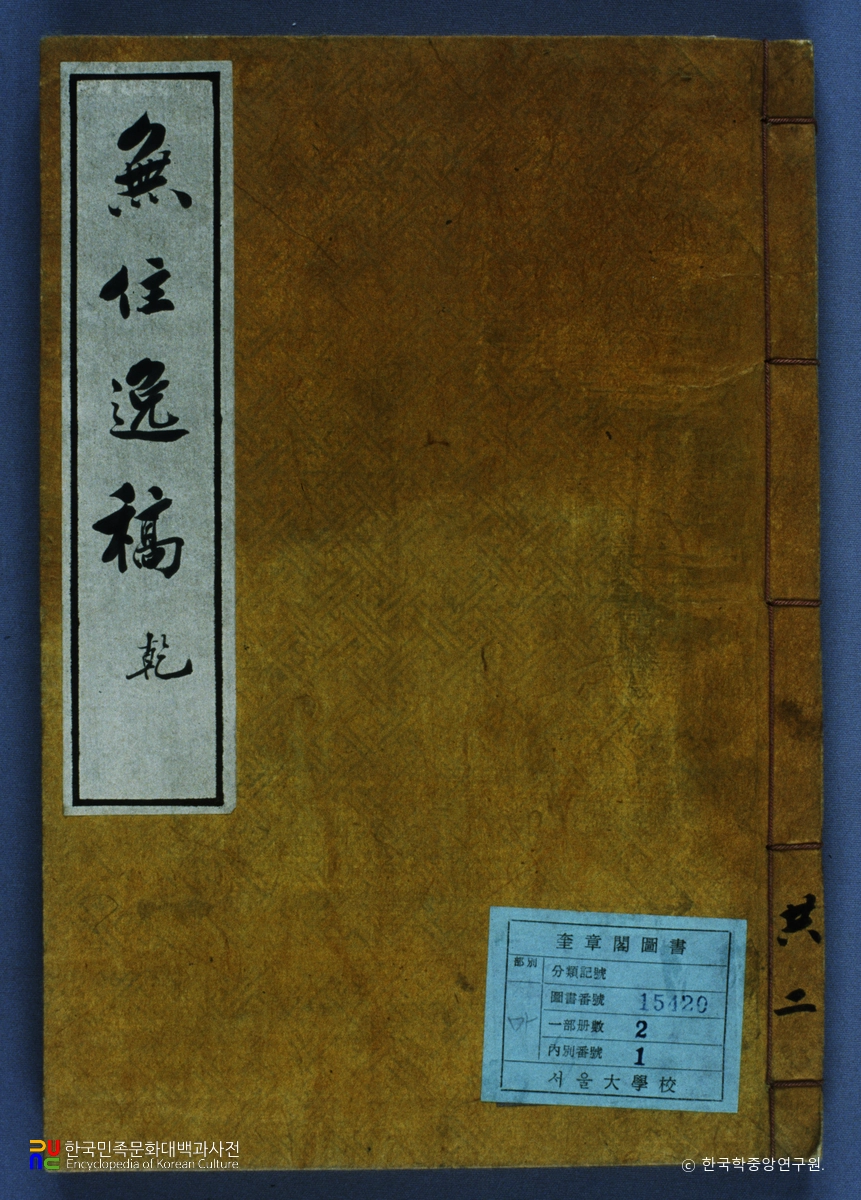 無住逸稿 乾
共二
奎章閣圖書
部別
分類記號
圖書番號 15420
一部册數 2
內別番號 1
서울大學校
한국민족문화대백과사전
Encyclopedia of Korean Culture
ⓒ 한국학중앙연구원.